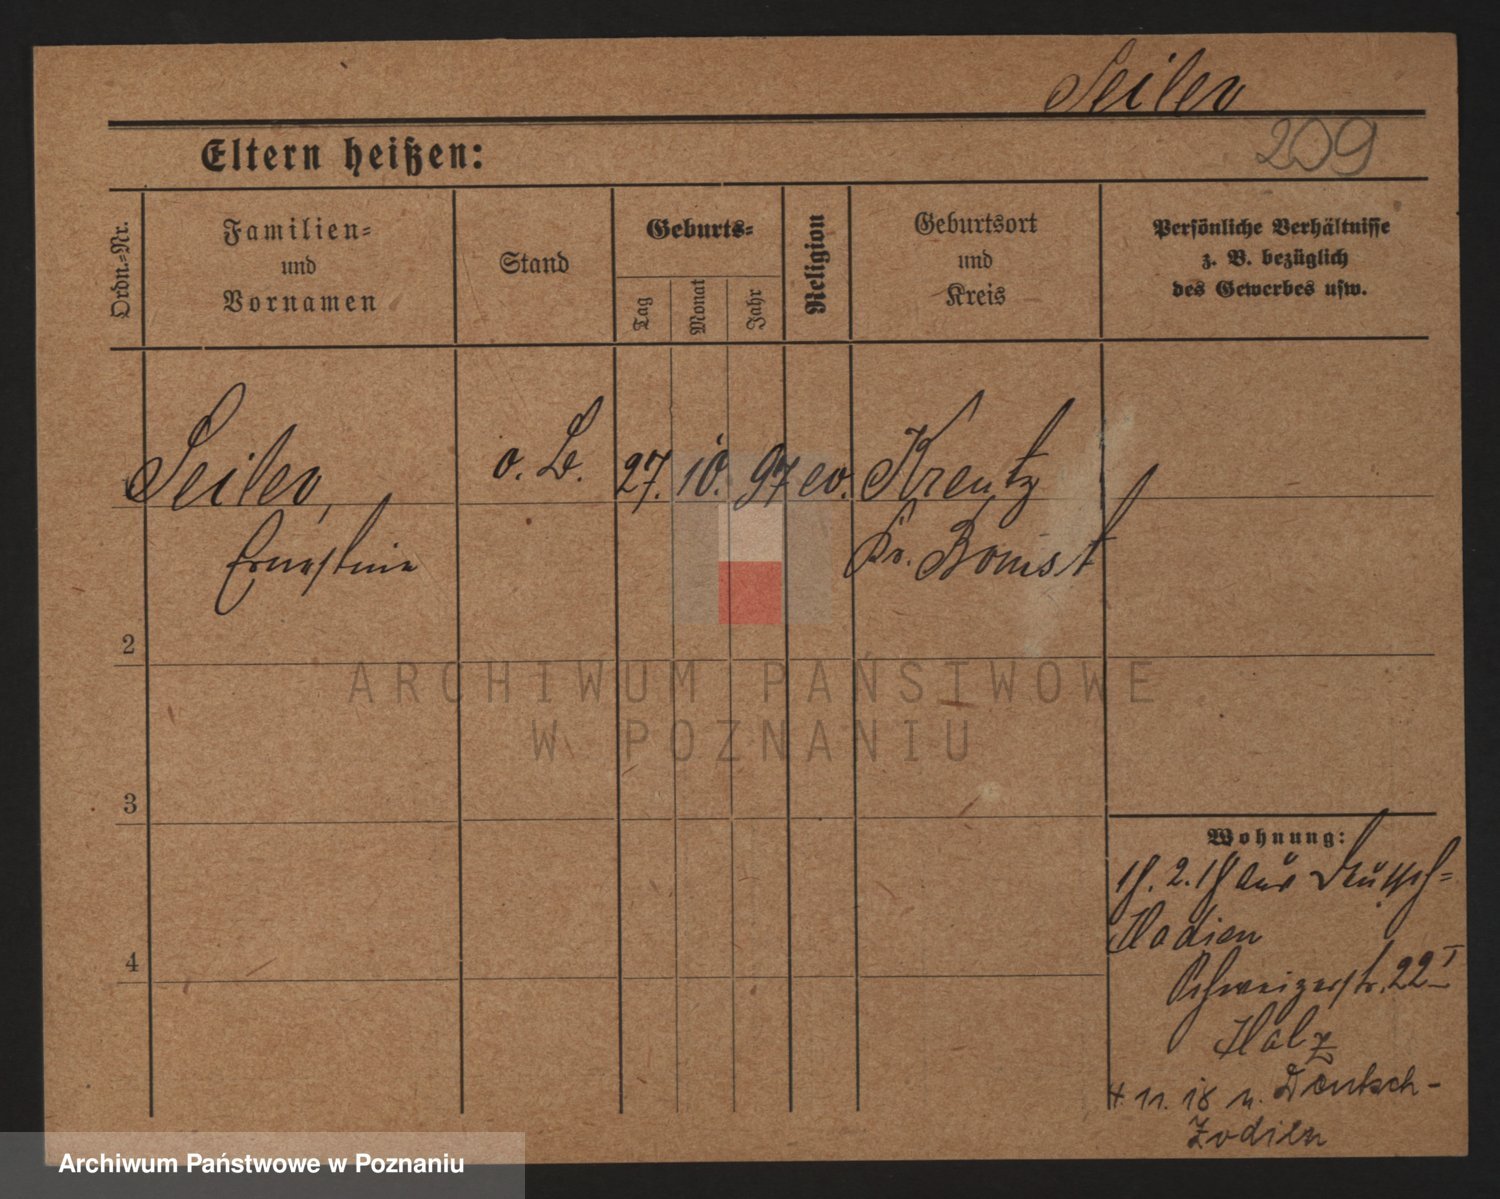 Seiler
209
Eltern heißen:
Ordn.-Nr.
Familien-
und
Vornamen
Stand
Geburts-
Tag
Monat
Jahr
Religion
Geburtsort
und
Kreis
Persönliche Verhältnisse
z. B. bezüglich
des Gewerbes usw.
1 Seiler, o. B. 27. 10. 97 ev. Kreutz
Ernestine Kr. Bomst
2
3
4
Wohnung:
18. 2. 18 aus Deutsch-
Schweizerstr. 22 I
11. 18 n. Deutsch-
ARCHIWUM PAŃSTWOWE
W POZNANIU
Archiwum Państwowe w Poznaniu